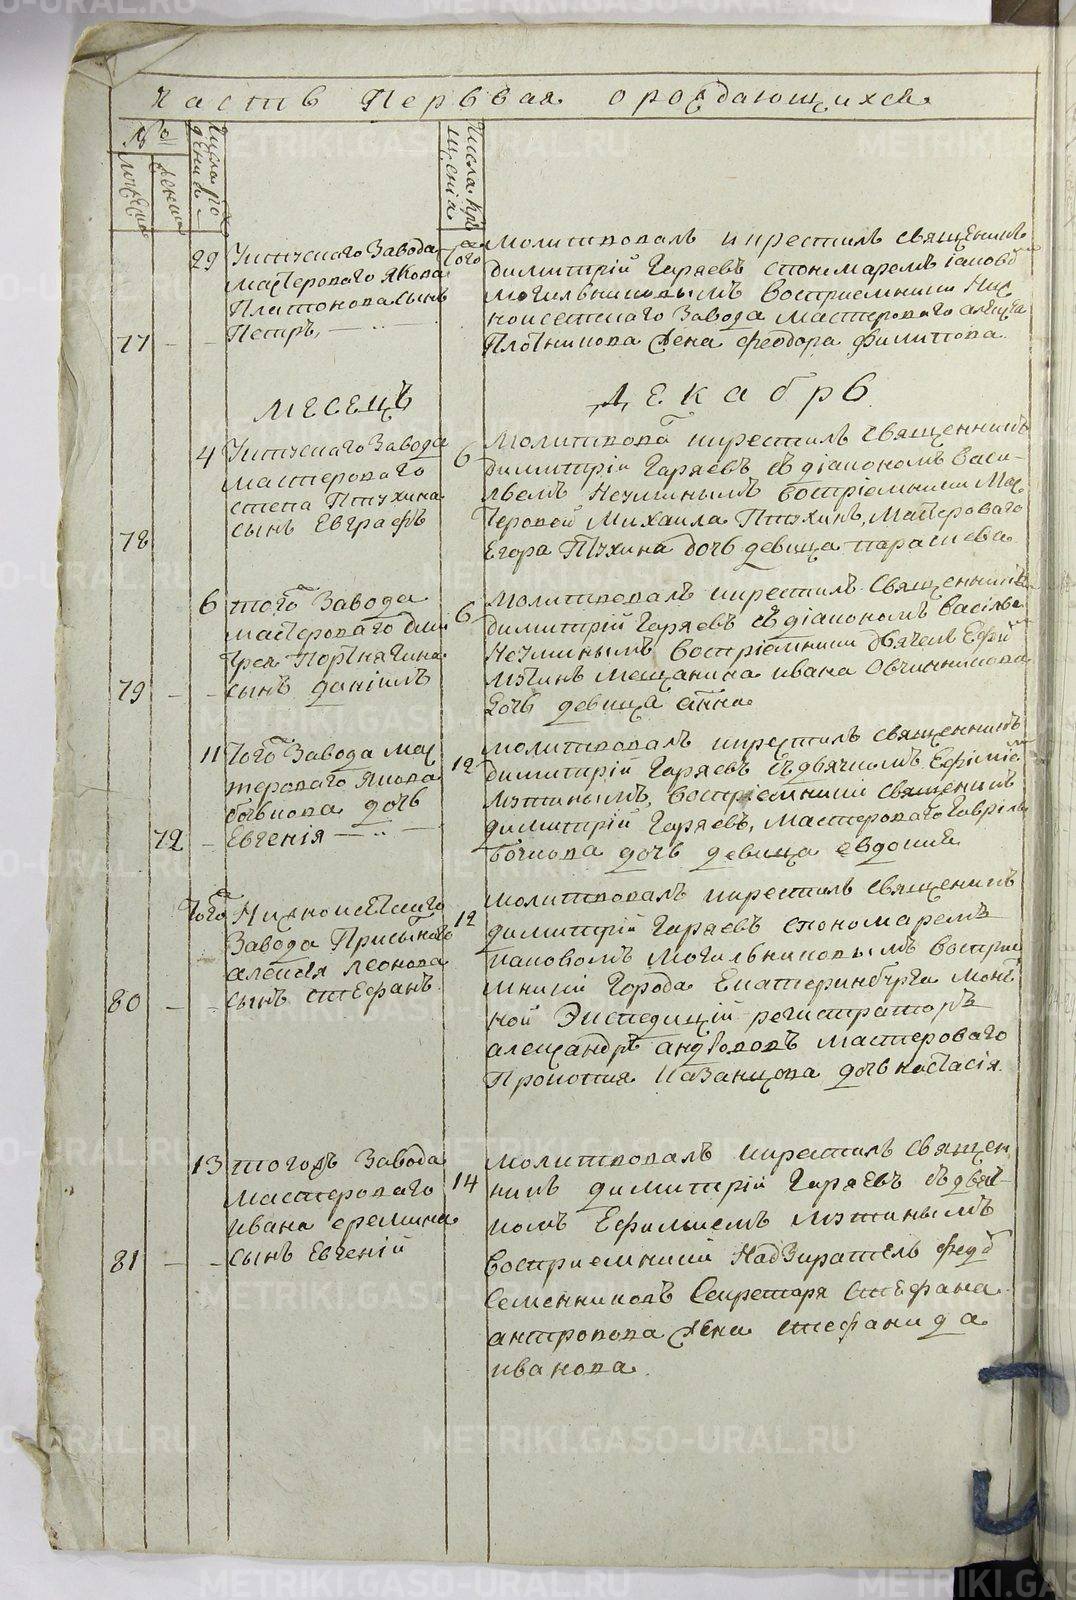 Часть Первая ораждающихся
№
мужеска
женска
Числа рождения
Числа крещения
29 Уктускаго Завода
мастероваго Якова
Платонова сынъ
Петръ,
77
того
молитвовалъ и крестилъ священникъ
димитрій Гаряевъ спономаремъ іаковом
могильниковымъ восприемники Ниж
ноисетскаго Завода мастероваго
Плотникова жена феодора филипова
МЕСЕЦЪ ДЕКАБРЬ
4 Уктускаго Завода
мастероваго
степа Птухина
сынъ Евграфъ
78
6
молитвова икрестилъ священникъ
димитрій Гаряевъ съ діакономъ Васи-
льемъ восприемники Мас
теровой Михаила Птухинъ, Мастероваго
Егора Птухина дочь девица параскева
6 того Завода
мастероваго дми
трея Портнягина
сынъ даніилъ
79
6
молитвовалъ икрестилъ священникъ
димитрій Гаряевъ съ діакономъ Васілье
восприемники дьячекъ Ефим
Мѣтинъ мещанина ивана Овчинникова
дочь девица анна
11 того Завода мас
тероваго Якова
бочкова дочь
Евгенія
72
12
молитвовалъ икрестилъ священникъ
димитрій Гаряевъ съ дьячкомъ Ефиміе
Мѣтинымъ, восприемники священникъ
димитрій Гаряевъ, мастероваго Гаврила
бочкова дочь девица евдокия
того Нижноисетскаго
Завода Присыльнаго
алексѣя леонова
сынъ стефанъ
80
12
молитвовалъ икрестилъ священникъ
димитрій Гаряевъ спономаремъ
иаковомъ могильниковымъ восприе
мники Города Екатеринбурга монет
ной Экспедиціи регистраторъ
алеѯандръ мастероваго
Прокопия Казанцова дочь настасія
13 тогожъ Завода
мастероваго
ивана еремина
сынъ Евгеній
81
14
молитвовалъ икрестилъ священ
никъ димитрій Гаряевъ съ дьяч-
комъ Ефимиемъ мѣтинымъ
восприемники Надзиратель федо
Семенниковъ Секретаря стефана
антропова жена стефанида
иванова.